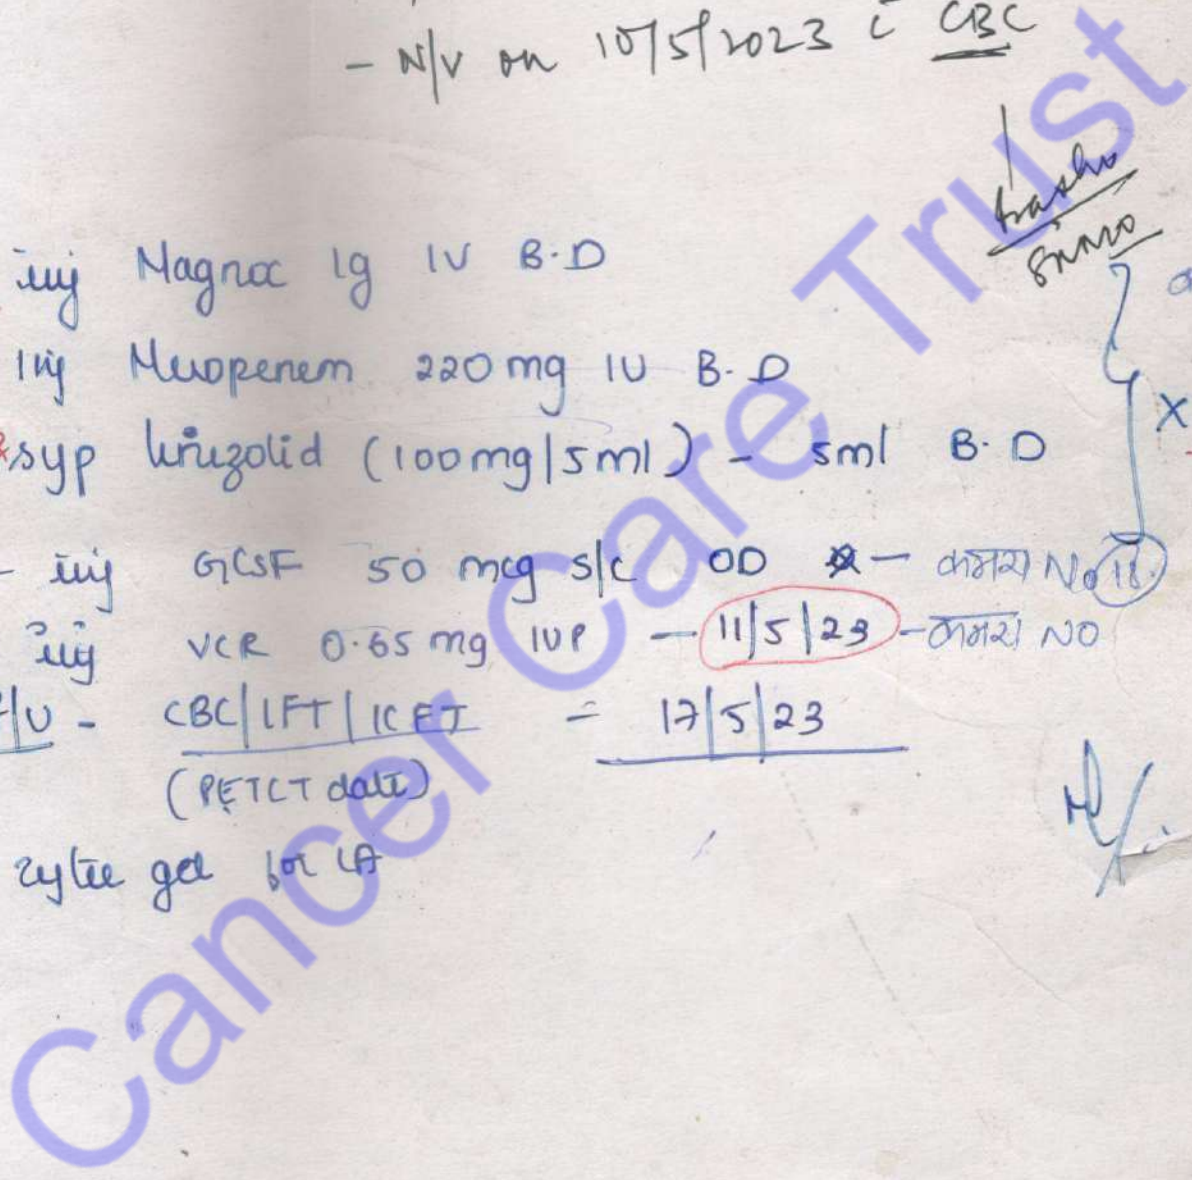 - N/V on 10/5/2023 c̄ CBC
inj Magnex 1g IV B.D
inj Meropenem 220 mg IV B.D
syp linezolid (100mg/5ml) - 5ml B.D
X
- inj GCSF 50 mcg s/c OD - कमरा No 18.
inj VCR 0.65 mg IVP - 11/5/23 - कमरा NO
F/U - CBC/LFT/KFT = 17/5/23
(PETCT date)
zytee gel for LA
Cancer Care Trust